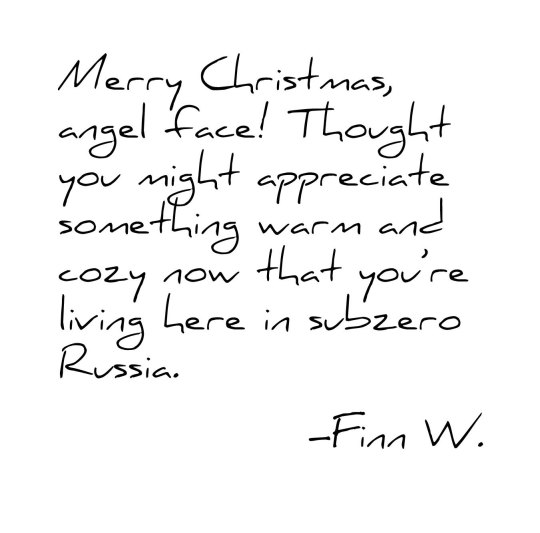 Merry Christmas,
angel face! Thought
you might appreciate
something warm and
cozy now that you're
living here in subzero
Russia.
-Finn W.